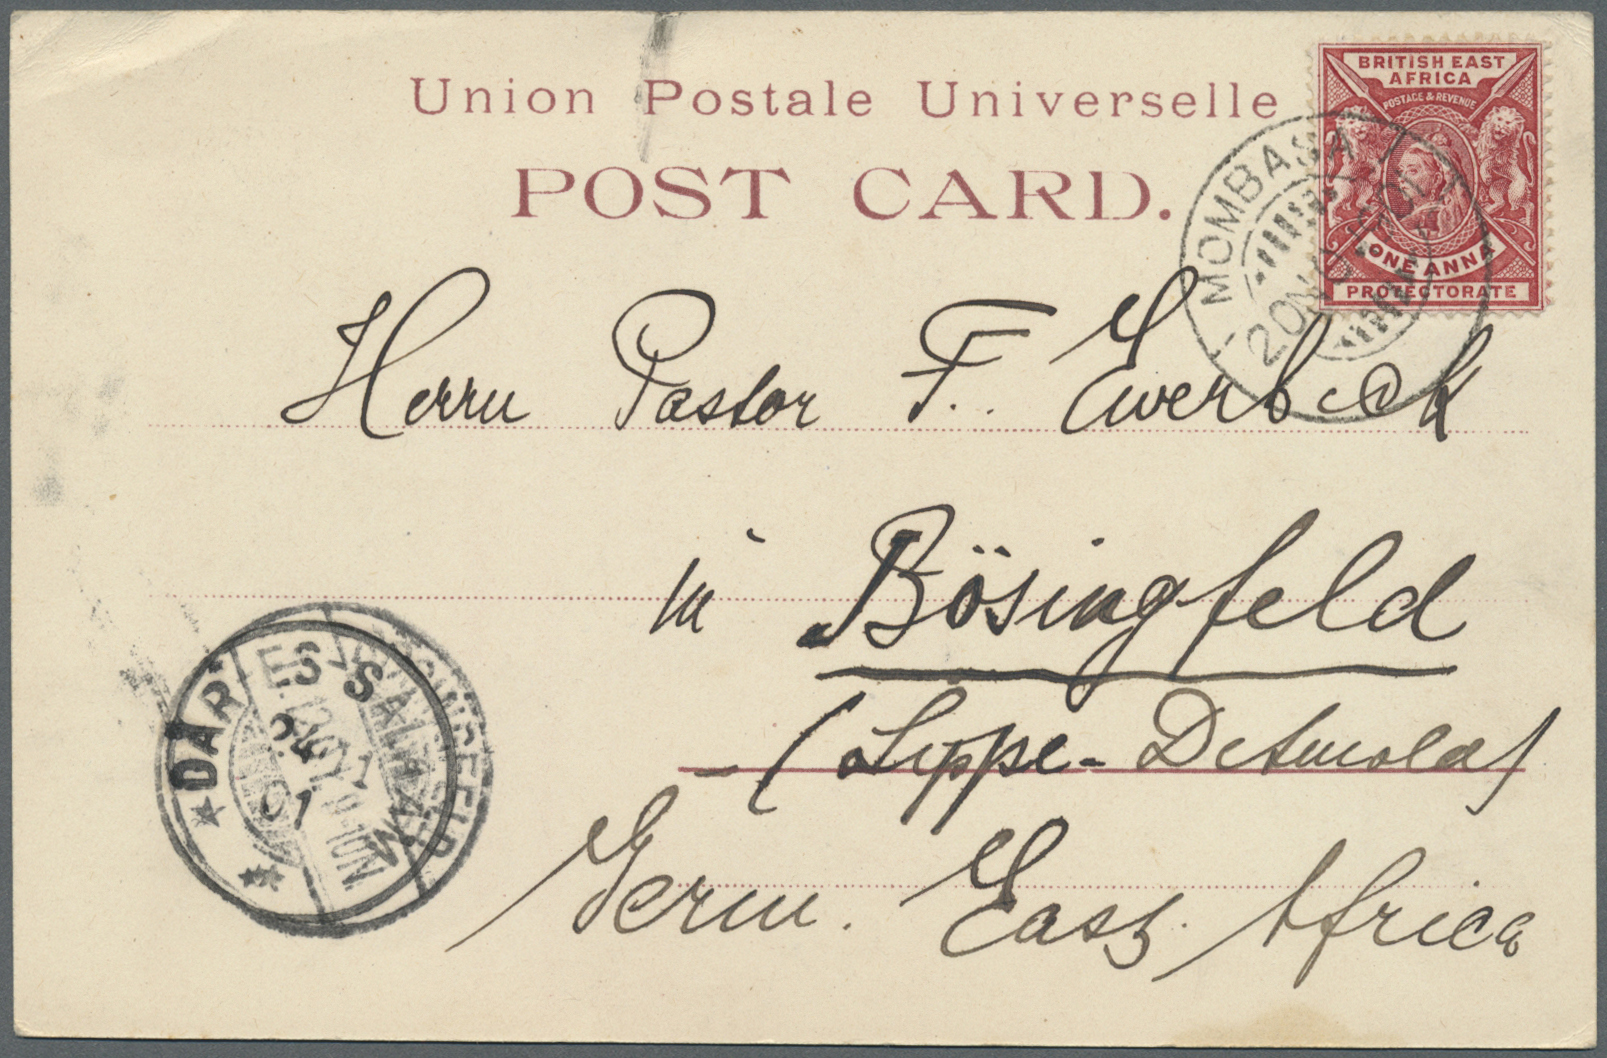 Union Postale Universelle
POST CARD.
BRITISH EAST
AFRICA
POSTAGE & REVENUE
ONE ANNA
PROTECTORATE
MOMBASA
20 NO
Herrn Pastor F. Ewerbeck
in Bösingfeld
(Lippe-Detmold)
Germ. East Africa
DAR-ES-SALAAM
01